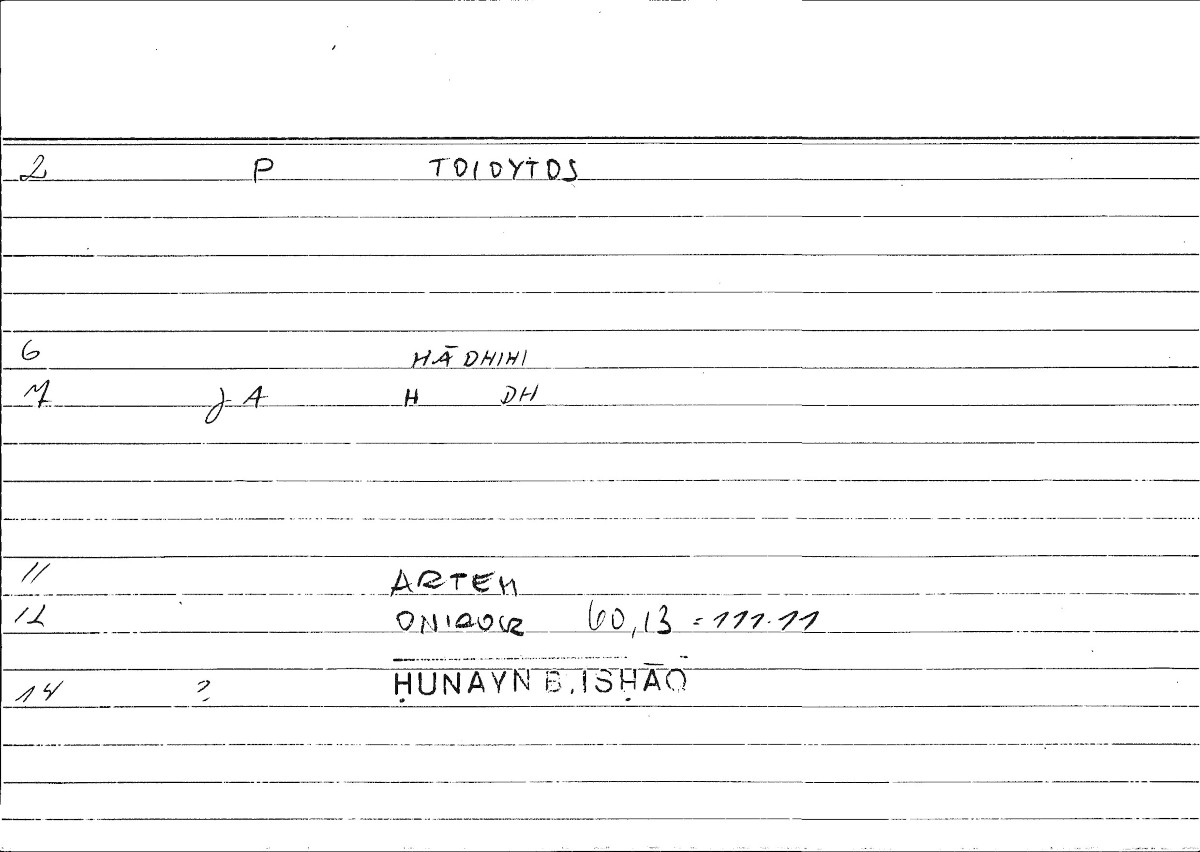 2 P TOIOYTOS
6 HĀDHIHI
7 J A H DH
11 ARTEM
12 ONIROCR 60,13 = 111.11
14 ? ḤUNAYN B. ISḤĀQ